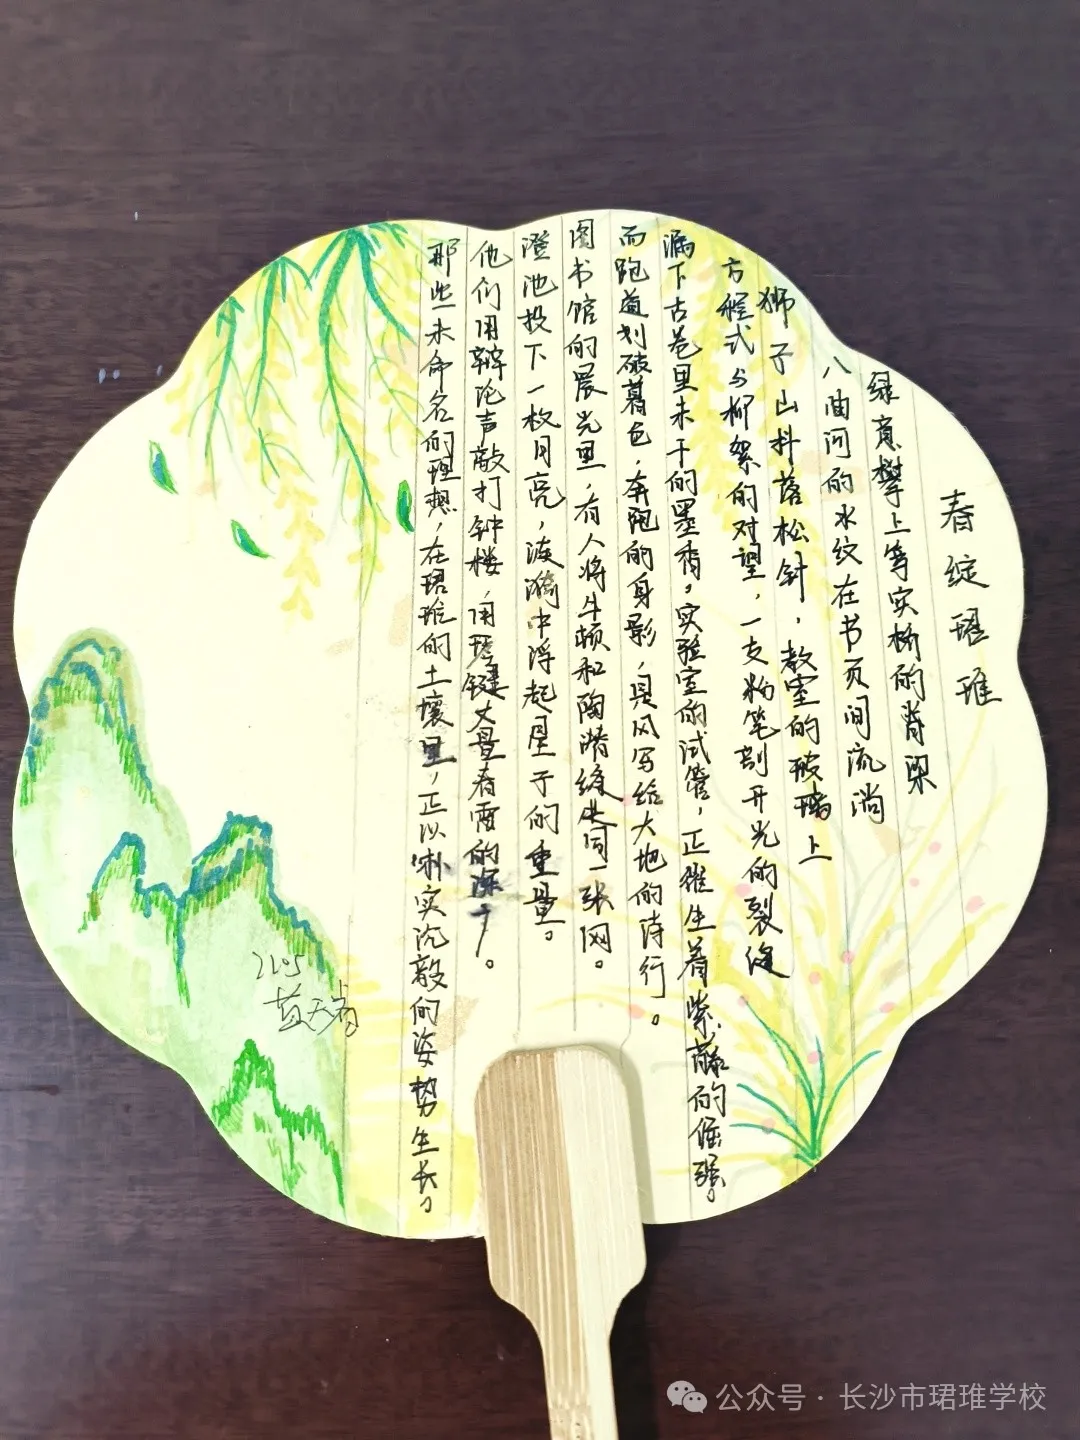 春绽珺琟
绿意攀上笃实桥的脊梁
八曲河的水纹在书页间流淌
狮子山抖落松针，教室的玻璃上
方程式与柳絮的对望，一支粉笔剖开光的裂缝
漏下古巷里未干的墨香。实验室的试管，正催生着紫藤的倔强。
而跑道划破暮色，奔跑的身影，是风写给大地的诗行。
图书馆的晨光里，有人将牛顿和陶潜缝进同一张网。
澄池投下一枚月亮，涟漪中浮起星子的重量。
他们用辩论声敲打钟楼，用琴键丈量春雷的深
那些未命名的理想，在珺琟的土壤里，正以朴实沉毅的姿势生长。
2105
公众号·长沙市珺琟学校